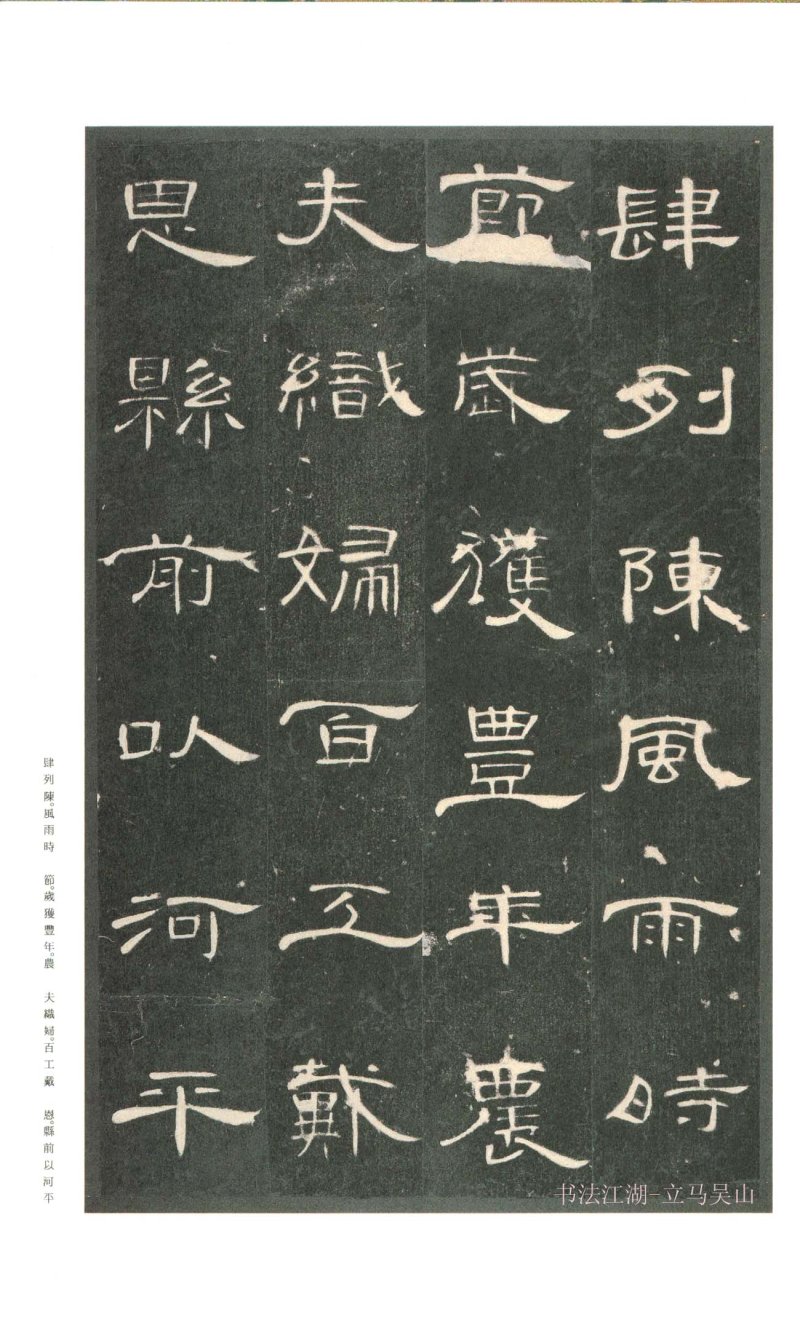 肆列陳風雨時
節歲獲豐年農
夫織婦百工戴
恩縣前以河平
肆列陳。風雨時　節。歲獲豐年。農　夫織婦。百工戴　恩。縣前以河平
书法江湖-立马吴山